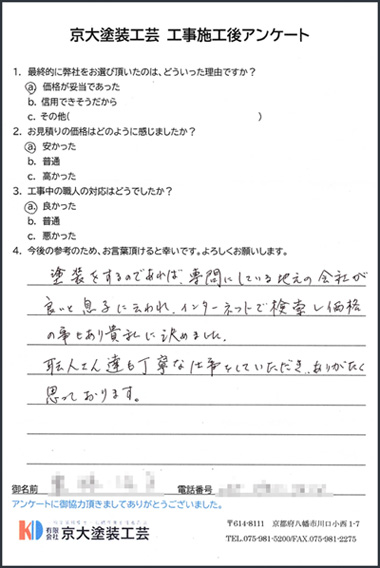 京大塗装工芸 工事施工後アンケート
1. 最終的に弊社をお選び頂いたのは、どういった理由ですか？
a. 価格が妥当であった
b. 信用できそうだから
c. その他( )
2. お見積りの価格はどのように感じましたか？
a. 安かった
b. 普通
c. 高かった
3. 工事中の職人の対応はどうでしたか？
a. 良かった
b. 普通
c. 悪かった
4. 今後の参考のため、お言葉頂けると幸いです。よろしくお願いします。
塗装をするのであれば、専門にしている地元の会社が
良いと息子に云われ、インターネットで検索し価格
の事もあり貴社に決めました。
職人さん達も丁寧な仕事をしていただき、ありがたく
思っております。
御名前 電話番号
アンケートに御協力頂きましてありがとうございました。
KD 有限会社 京大塗装工芸
〒614-8111 京都府八幡市川口小西1-7
TEL.075-981-5200/FAX.075-981-2275